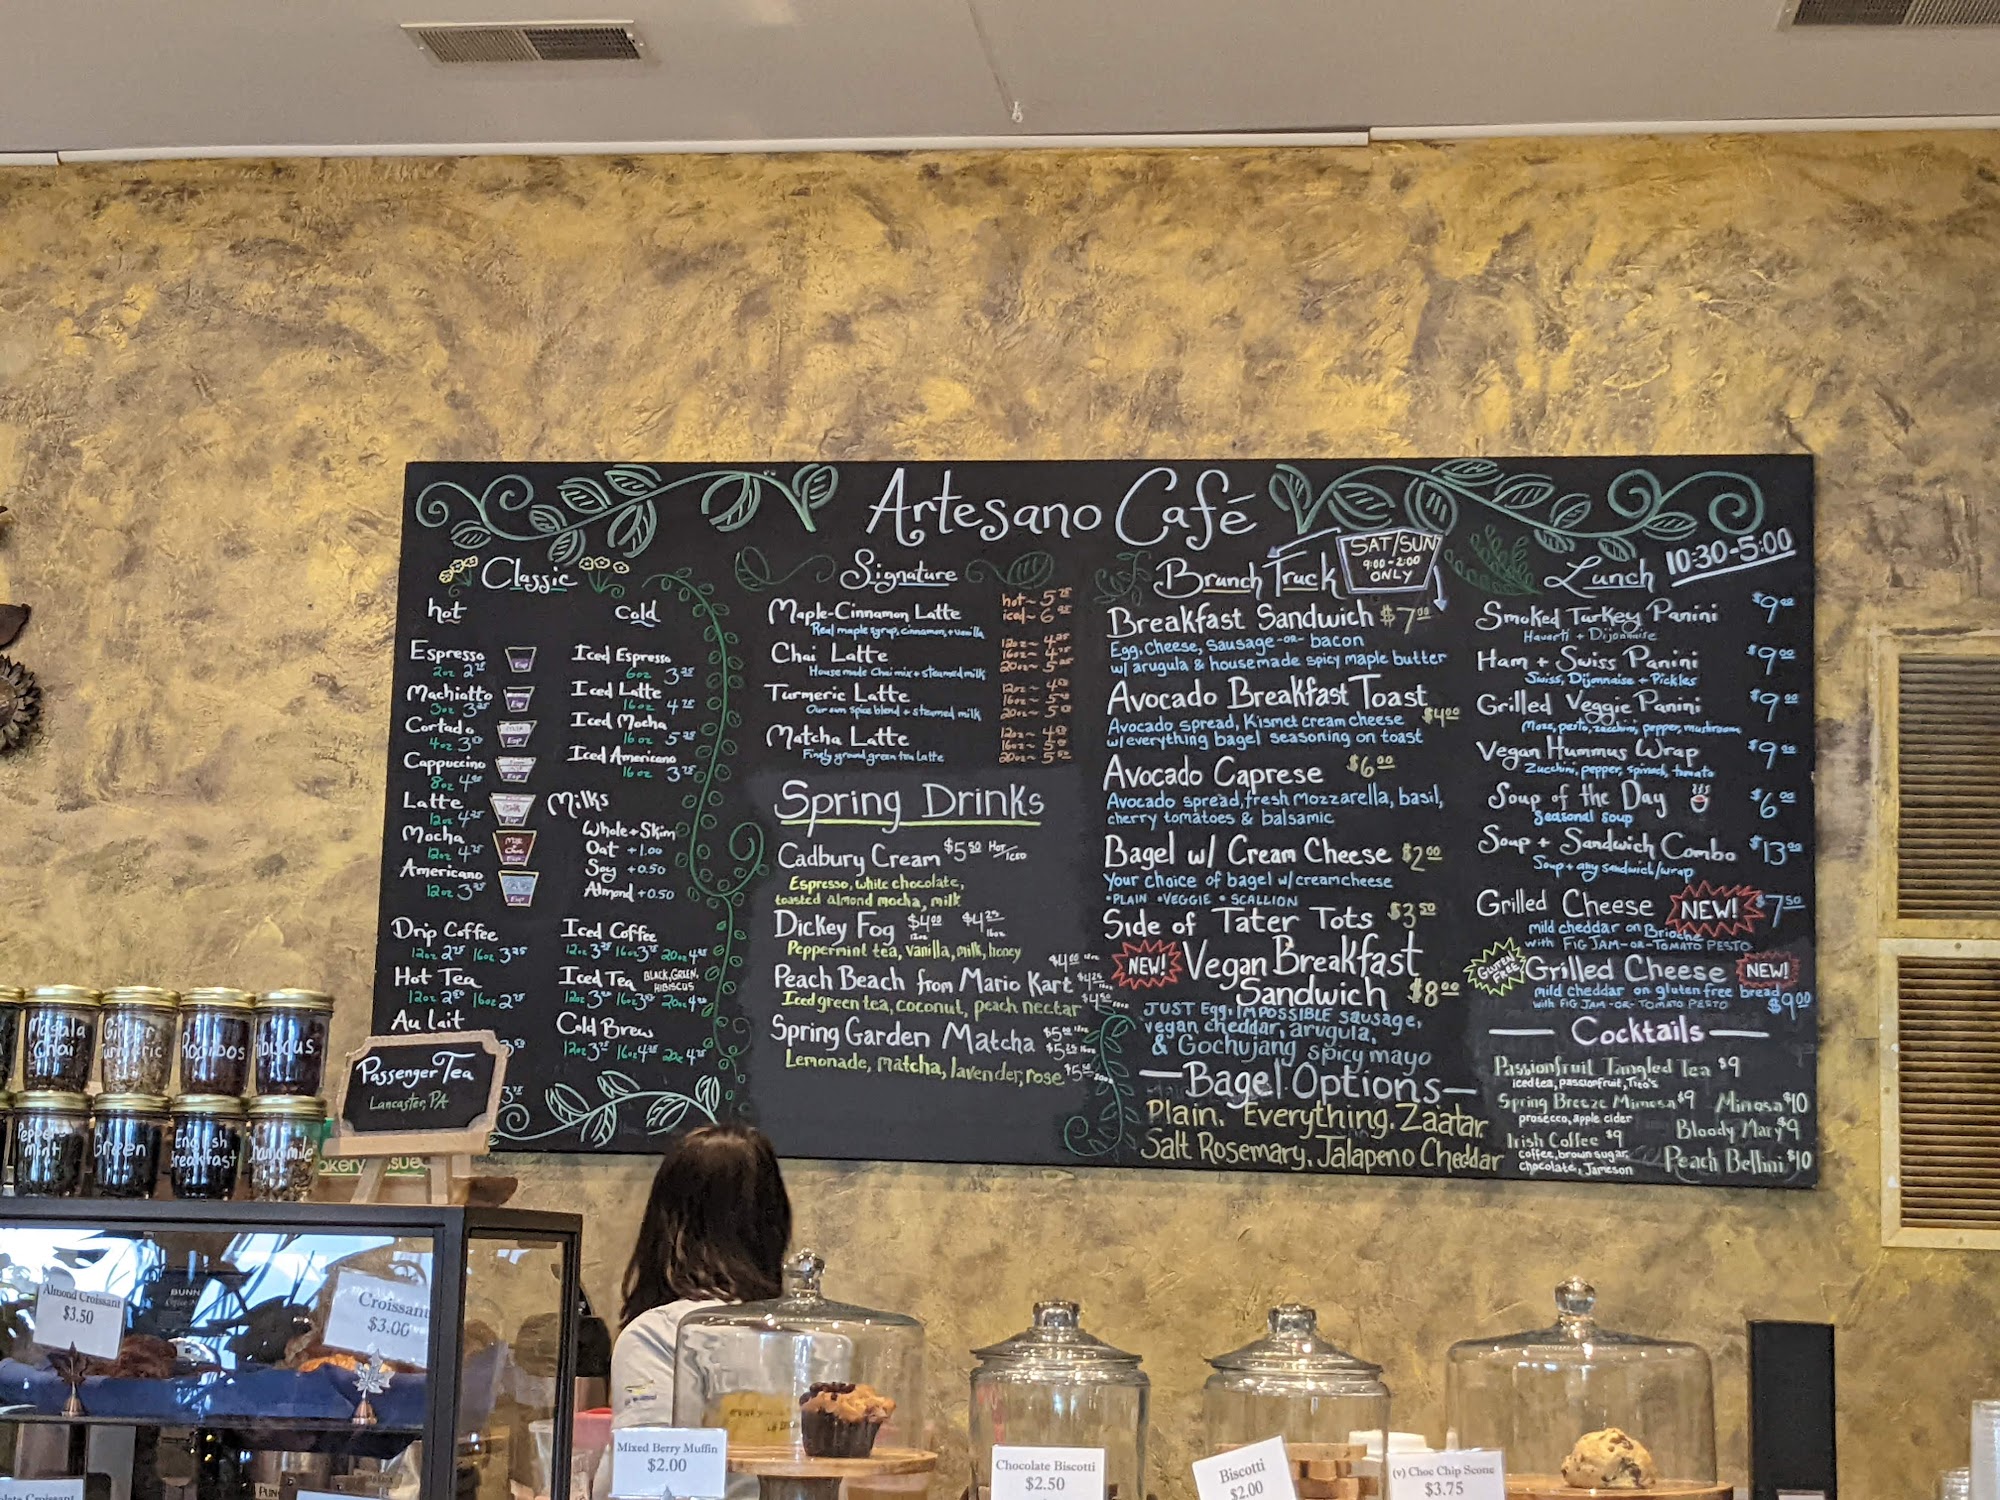 Artesano Café
Classic
hot
Espresso
2oz 2.75
Machiatto
3oz 3.25
Cortado
4oz 3.50
Cappuccino
8oz 4.00
Latte
12oz 4.25
Mocha
12oz 4.75
Americano
12oz 3.25
Drip Coffee
12oz 2.75 16oz 3.25
Hot Tea
12oz 2.50 16oz 2.75
Au Lait
cold
Iced Espresso
6oz 3.25
Iced Latte
16oz 4.75
Iced Mocha
16oz 5.25
Iced Americano
16oz 3.75
Milks
Whole + Skim
Oat +1.00
Soy +0.50
Almond +0.50
Iced Coffee
12oz 3.25 16oz 3.75 20oz 4.25
Iced Tea BLACK, GREEN,
HIBISCUS
Cold Brew
Signature
Maple-Cinnamon Latte
hot~ 5.75
iced~ 6.25
Real maple syrup, cinnamon, + vanilla
Chai Latte
12oz~ 4.25
16oz~ 4.75
20oz~ 5.25
House made Chai mix + steamed milk
Turmeric Latte
Our own spice blend + steamed milk
Matcha Latte
Finely ground green tea latte
Spring Drinks
Cadbury Cream $5.50 Hot/Iced
Espresso, white chocolate,
toasted almond mocha, milk
Dickey Fog $4.00 12oz $4.25 16oz
Peppermint tea, vanilla, milk, honey
Peach Beach from Mario Kart $4.00 12oz $4.25 $4.50
Iced green tea, coconut, peach nectar
Spring Garden Matcha $5.00 12oz $5.25 16oz
Lemonade, matcha, lavender, rose $5.50 20oz
Brunch Truck
SAT/SUN
9:00-2:00
ONLY
Breakfast Sandwich $7.00
Egg, cheese, sausage -or- bacon
w/ arugula & housemade spicy maple butter
Avocado Breakfast Toast $4.00
Avocado spread, Kismet cream cheese
w/ everything bagel seasoning on toast
Avocado Caprese $6.00
Avocado spread, fresh mozzarella, basil,
cherry tomatoes & balsamic
Bagel w/ Cream Cheese $2.00
Your choice of bagel w/ creamcheese
•PLAIN •VEGGIE •SCALLION
Side of Tater Tots $3.50
NEW! Vegan Breakfast
Sandwich $8.00
JUST Egg, IMPOSSIBLE sausage,
vegan cheddar, arugula,
& Gochujang spicy mayo
Bagel Options
Plain, Everything, Zaatar
Salt Rosemary, Jalapeno Cheddar
Lunch 10:30-5:00
Smoked Turkey Panini $9.00
Havarti + Dijonnaise
Ham + Swiss Panini $9.00
Swiss, Dijonnaise + Pickles
Grilled Veggie Panini $9.00
Mozz, pesto, zucchini, pepper, mushroom
Vegan Hummus Wrap $9.00
Zucchini, pepper, spinach, tomato
Soup of the Day $6.00
Seasonal soup
Soup + Sandwich Combo $13.00
Soup + any sandwich/wrap
Grilled Cheese NEW! $7.50
mild cheddar on Brioche
with FIG JAM -OR- TOMATO PESTO
GLUTEN FREE Grilled Cheese NEW!
mild cheddar on gluten free bread
with FIG JAM -OR- TOMATO PESTO $9.00
Cocktails
Passionfruit Tangled Tea $9
iced tea, passionfruit, Tito's
Spring Breeze Mimosa $9
prosecco, apple cider
Irish Coffee $9
coffee, brown sugar,
chocolate, Jameson
Mimosa $10
Bloody Mary $9
Peach Bellini $10
Masala Chai
Ginger Turmeric
Rooibos
Hibiscus
Peppermint
Green
English Breakfast
Chamomile
Passenger Tea
Lancaster, PA
Almond Croissant
$3.50
BUNN
Croissant
$3.00
Mixed Berry Muffin
$2.00
Chocolate Biscotti
$2.50
Biscotti
$2.00
(v) Choc Chip Scone
$3.75